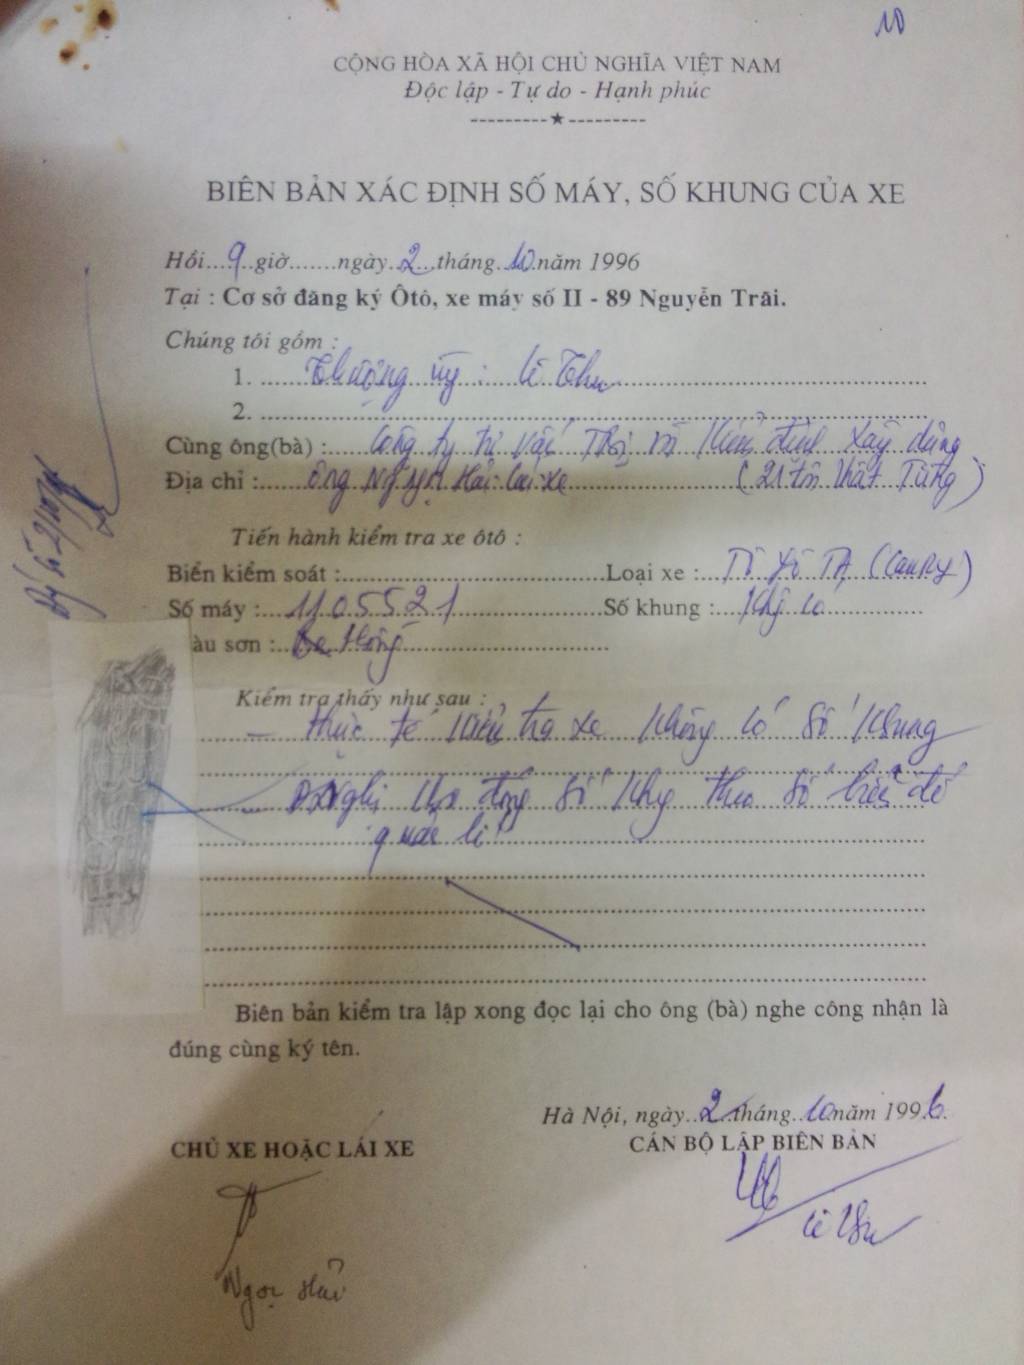 10
CỘNG HÒA XÃ HỘI CHỦ NGHĨA VIỆT NAM
Độc lập - Tự do - Hạnh phúc
---------★---------
BIÊN BẢN XÁC ĐỊNH SỐ MÁY, SỐ KHUNG CỦA XE
Hồi...9..giờ.......ngày..2...tháng..10.năm 1996
Tại : Cơ sở đăng ký Ôtô, xe máy số II - 89 Nguyễn Trãi.
Chúng tôi gồm :
1. Thượng úy : Lê Thu
2.
Cùng ông(bà) : Công ty tư vấn và Kiểm định Xây dựng
Địa chỉ : Ông Hải lái xe (21 Tôn Thất Tùng)
Tiến hành kiểm tra xe ôtô :
Biển kiểm soát : Loại xe : TÔ YÔ TA (CamRy)
Số máy : 1105521 Số khung : Không có
àu sơn : Hồng
Kiểm tra thấy như sau :
- Thực tế kiểm tra xe không có số khung
- Đề Nghị cho đóng số khung theo số biển để
quản lí
Biên bản kiểm tra lập xong đọc lại cho ông (bà) nghe công nhận là
đúng cùng ký tên.
Hà Nội, ngày..2..tháng..10.năm 1996
CHỦ XE HOẶC LÁI XE CÁN BỘ LẬP BIÊN BẢN
Lê Thu
Ngọc Hải